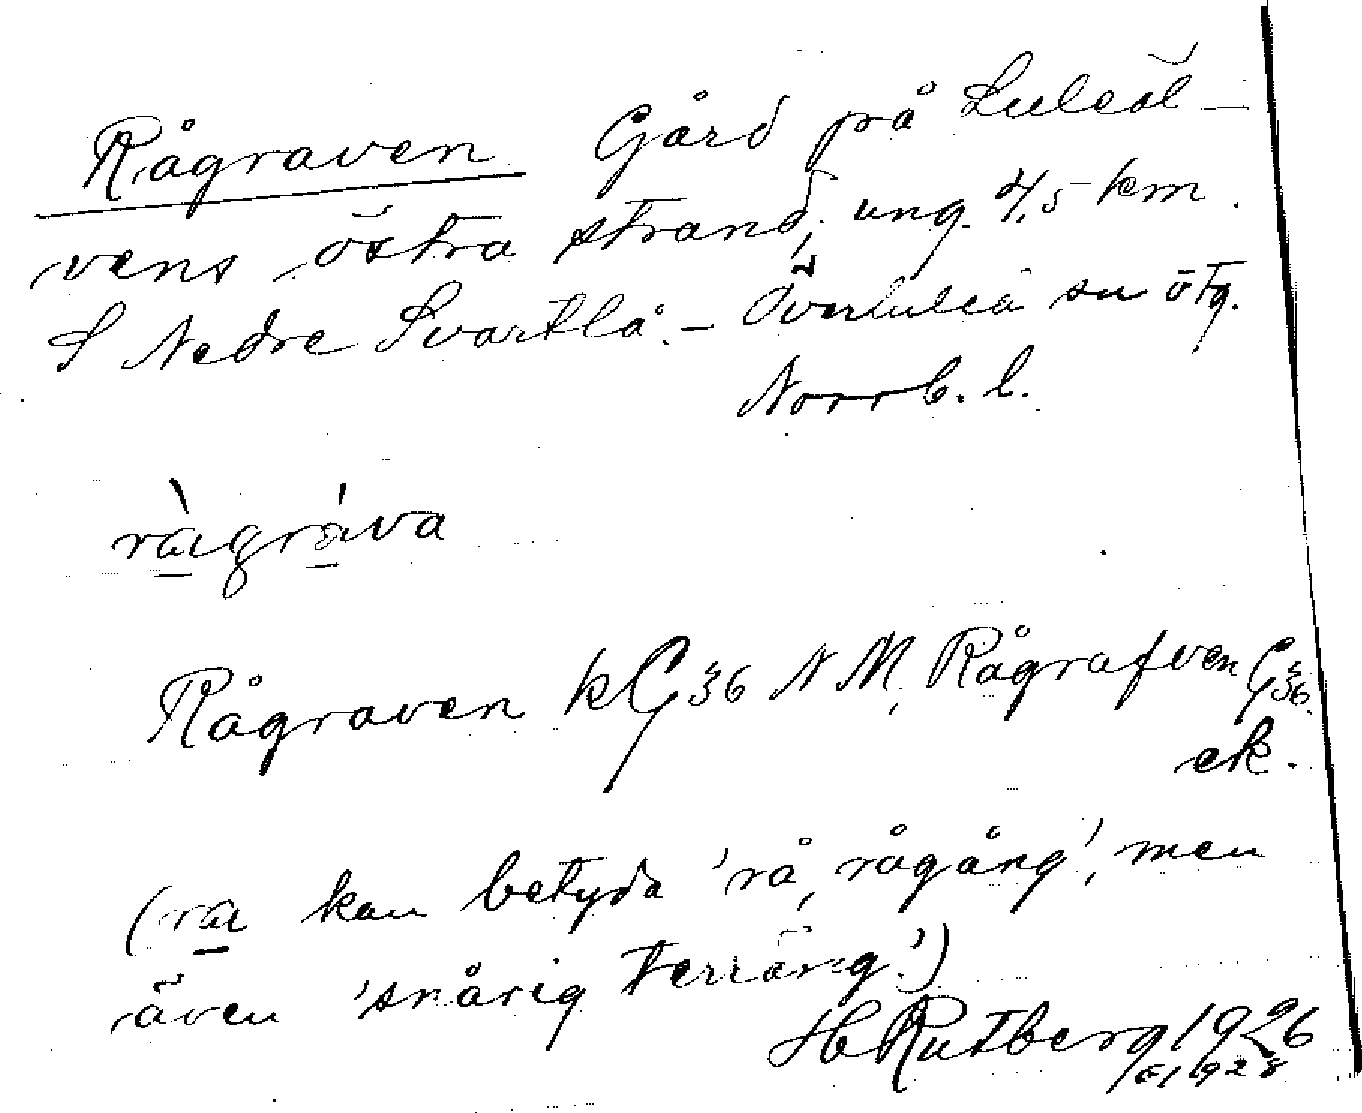 Rågraven Gård på Luleäl-
vens östra strand, ung. 4,5 km.
S Nedre Svartlå. - Överluleå sn ötg.
Norrb. l.
ràgráva
Rågraven kG36 NM, Rågrafven G36
ek.
(ra kan betyda 'rå, rågång', men
även 'snårig terräng'.)
H Rutberg 1926
1928